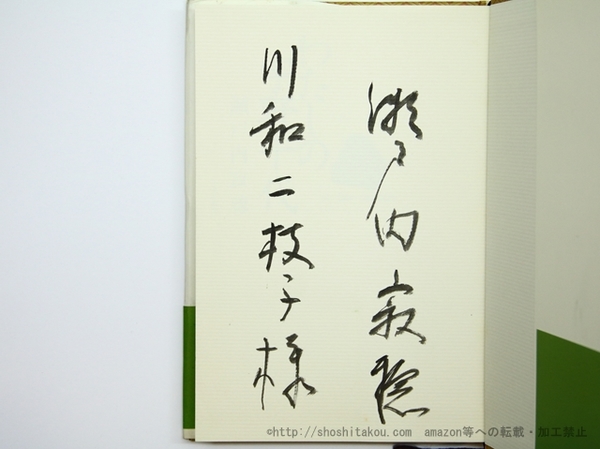 瀬戸内寂聴
川和二枝子様
©http://shoshitakou.com amazon等への転載・加工禁止